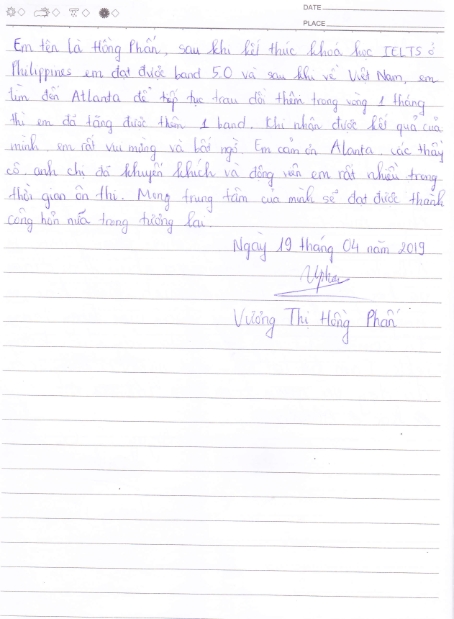 DATE
PLACE
Em tên là Hồng Phấn, sau khi kết thúc khoá học IELTS ở
Philippines em đạt được band 5.0 và sau khi về Việt Nam, em
tìm đến Atlanta để tiếp tục trau dồi thêm trong vòng 1 tháng
thì em đã tăng được thêm 1 band. Khi nhận được kết quả của
mình, em rất vui mừng và bất ngờ. Em cảm ơn Alanta, các thầy
cô, anh chị đã khuyến khích và động viên em rất nhiều trong
thời gian ôn thi. Mong trung tâm của mình sẽ đạt được thành
công hơn nữa trong tương lai.
Ngày 19 tháng 04 năm 2019
Vương Thị Hồng Phấn